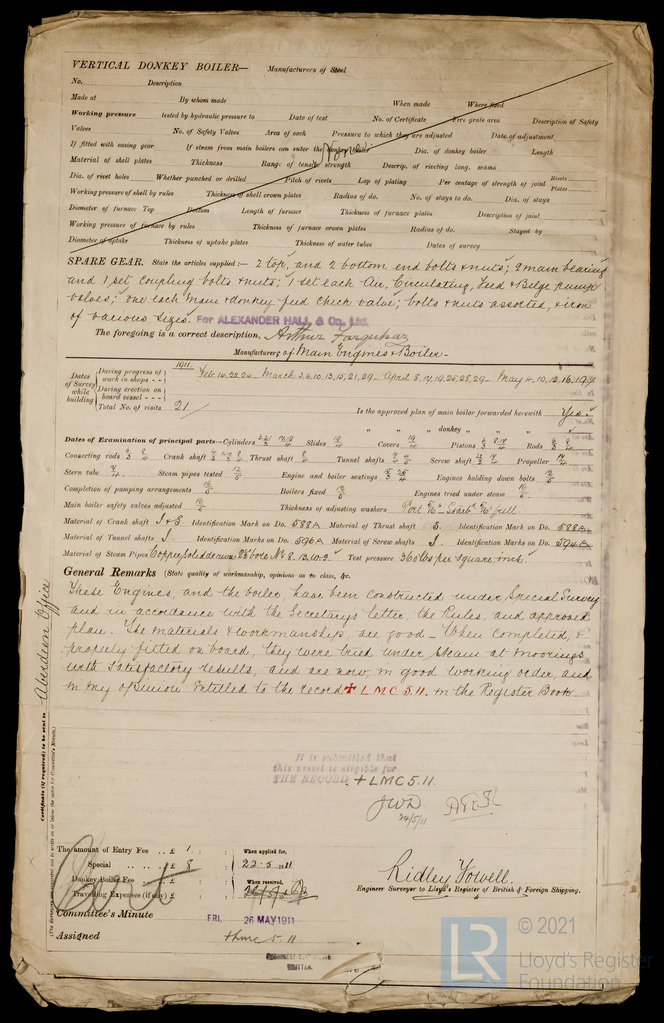 VERTICAL DONKEY BOILER— Manufacturers of Steel
No. Description
Made at By whom made When made Where fixed
Working pressure tested by hydraulic pressure to Date of test No. of Certificate Fire grate area Description of Safety
Valves No. of Safety Valves Area of each Pressure to which they are adjusted Date of adjustment
If fitted with easing gear If steam from main boilers can enter the donkey boiler Dia. of donkey boiler Length
Material of shell plates Thickness Range of tensile strength Descrip. of riveting long. seams
Dia. of rivet holes Whether punched or drilled Pitch of rivets Lap of plating Per centage of strength of joint Rivets Plates
Working pressure of shell by rules Thickness of shell crown plates Radius of do. No. of stays to do. Dia. of stays
Diameter of furnace Top Bottom Length of furnace Thickness of furnace plates Description of joint
Working pressure of furnace by rules Thickness of furnace crown plates Radius of do. Stayed by
Diameter of uptake Thickness of uptake plates Thickness of water tubes Dates of survey
SPARE GEAR. State the articles supplied:— 2 top, and 2 bottom end bolts & nuts; 2 main bearing
and 1 set coupling bolts & nuts; 1 set each Air, Circulating, Feed & Bilge pump
valves; one each main & donkey feed check valve; bolts & nuts assorted, & iron
of various sizes. For ALEXANDER HALL & Co., Ltd.
The foregoing is a correct description, Arthur Farquhar
Manufacturer of Main Engines & Boiler
Dates of Survey while building
During progress of work in shops 1911. Feb 16,22,24 March 3,6,10,13,15,21,29 April 8,17,19,26,28,29 May 4,10,12,16,19
During erection on board vessel
Total No. of visits 21 Is the approved plan of main boiler forwarded herewith Yes
" " " donkey " " "
Dates of Examination of principal parts—Cylinders Slides Covers Pistons Rods
Connecting rods Crank shaft Thrust shaft Tunnel shafts Screw shaft Propeller
Stern tube Steam pipes tested Engine and boiler seatings Engines holding down bolts
Completion of pumping arrangements Boilers fixed Engines tried under steam
Main boiler safety valves adjusted Thickness of adjusting washers
Material of Crank shaft I & S. Identification Mark on Do. 588A Material of Thrust shaft S. Identification Mark on Do. 588A
Material of Tunnel shafts I. Identification Marks on Do. 596A Material of Screw shafts I. Identification Marks on Do. 594A
Material of Steam Pipes Copper, solid drawn Test pressure 360 lbs per square inch
General Remarks (State quality of workmanship, opinions as to class, &c.
These Engines, and the boiler, have been constructed under Special Survey
and in accordance with the Secretary's letter, the Rules, and approved
plan. The materials & workmanship are good – When completed, &
properly fitted on board, they were tried under steam at moorings
with satisfactory results, and are now in good working order, and
in my opinion entitled to the record + L.M.C. 5.11. in the Register Book.
Aberdeen Office
Certificate (if required) to be sent to
It is submitted that
this vessel is eligible for
THE RECORD. + LMC 5.11.
JWD
24/5/11
The amount of Entry Fee £ 1 : When applied for,
Special £ 8 : 22.5.1911
Donkey Boiler Fee £ : When received,
Travelling Expenses (if any) £ :
Ridley Fowell.
Engineer Surveyor to Lloyd's Register of British & Foreign Shipping.
Committee's Minute FRI. 26 MAY 1911
Assigned + lmc 5.11
WRITTEN.
© 2021
LR Lloyd's Register
Foundation